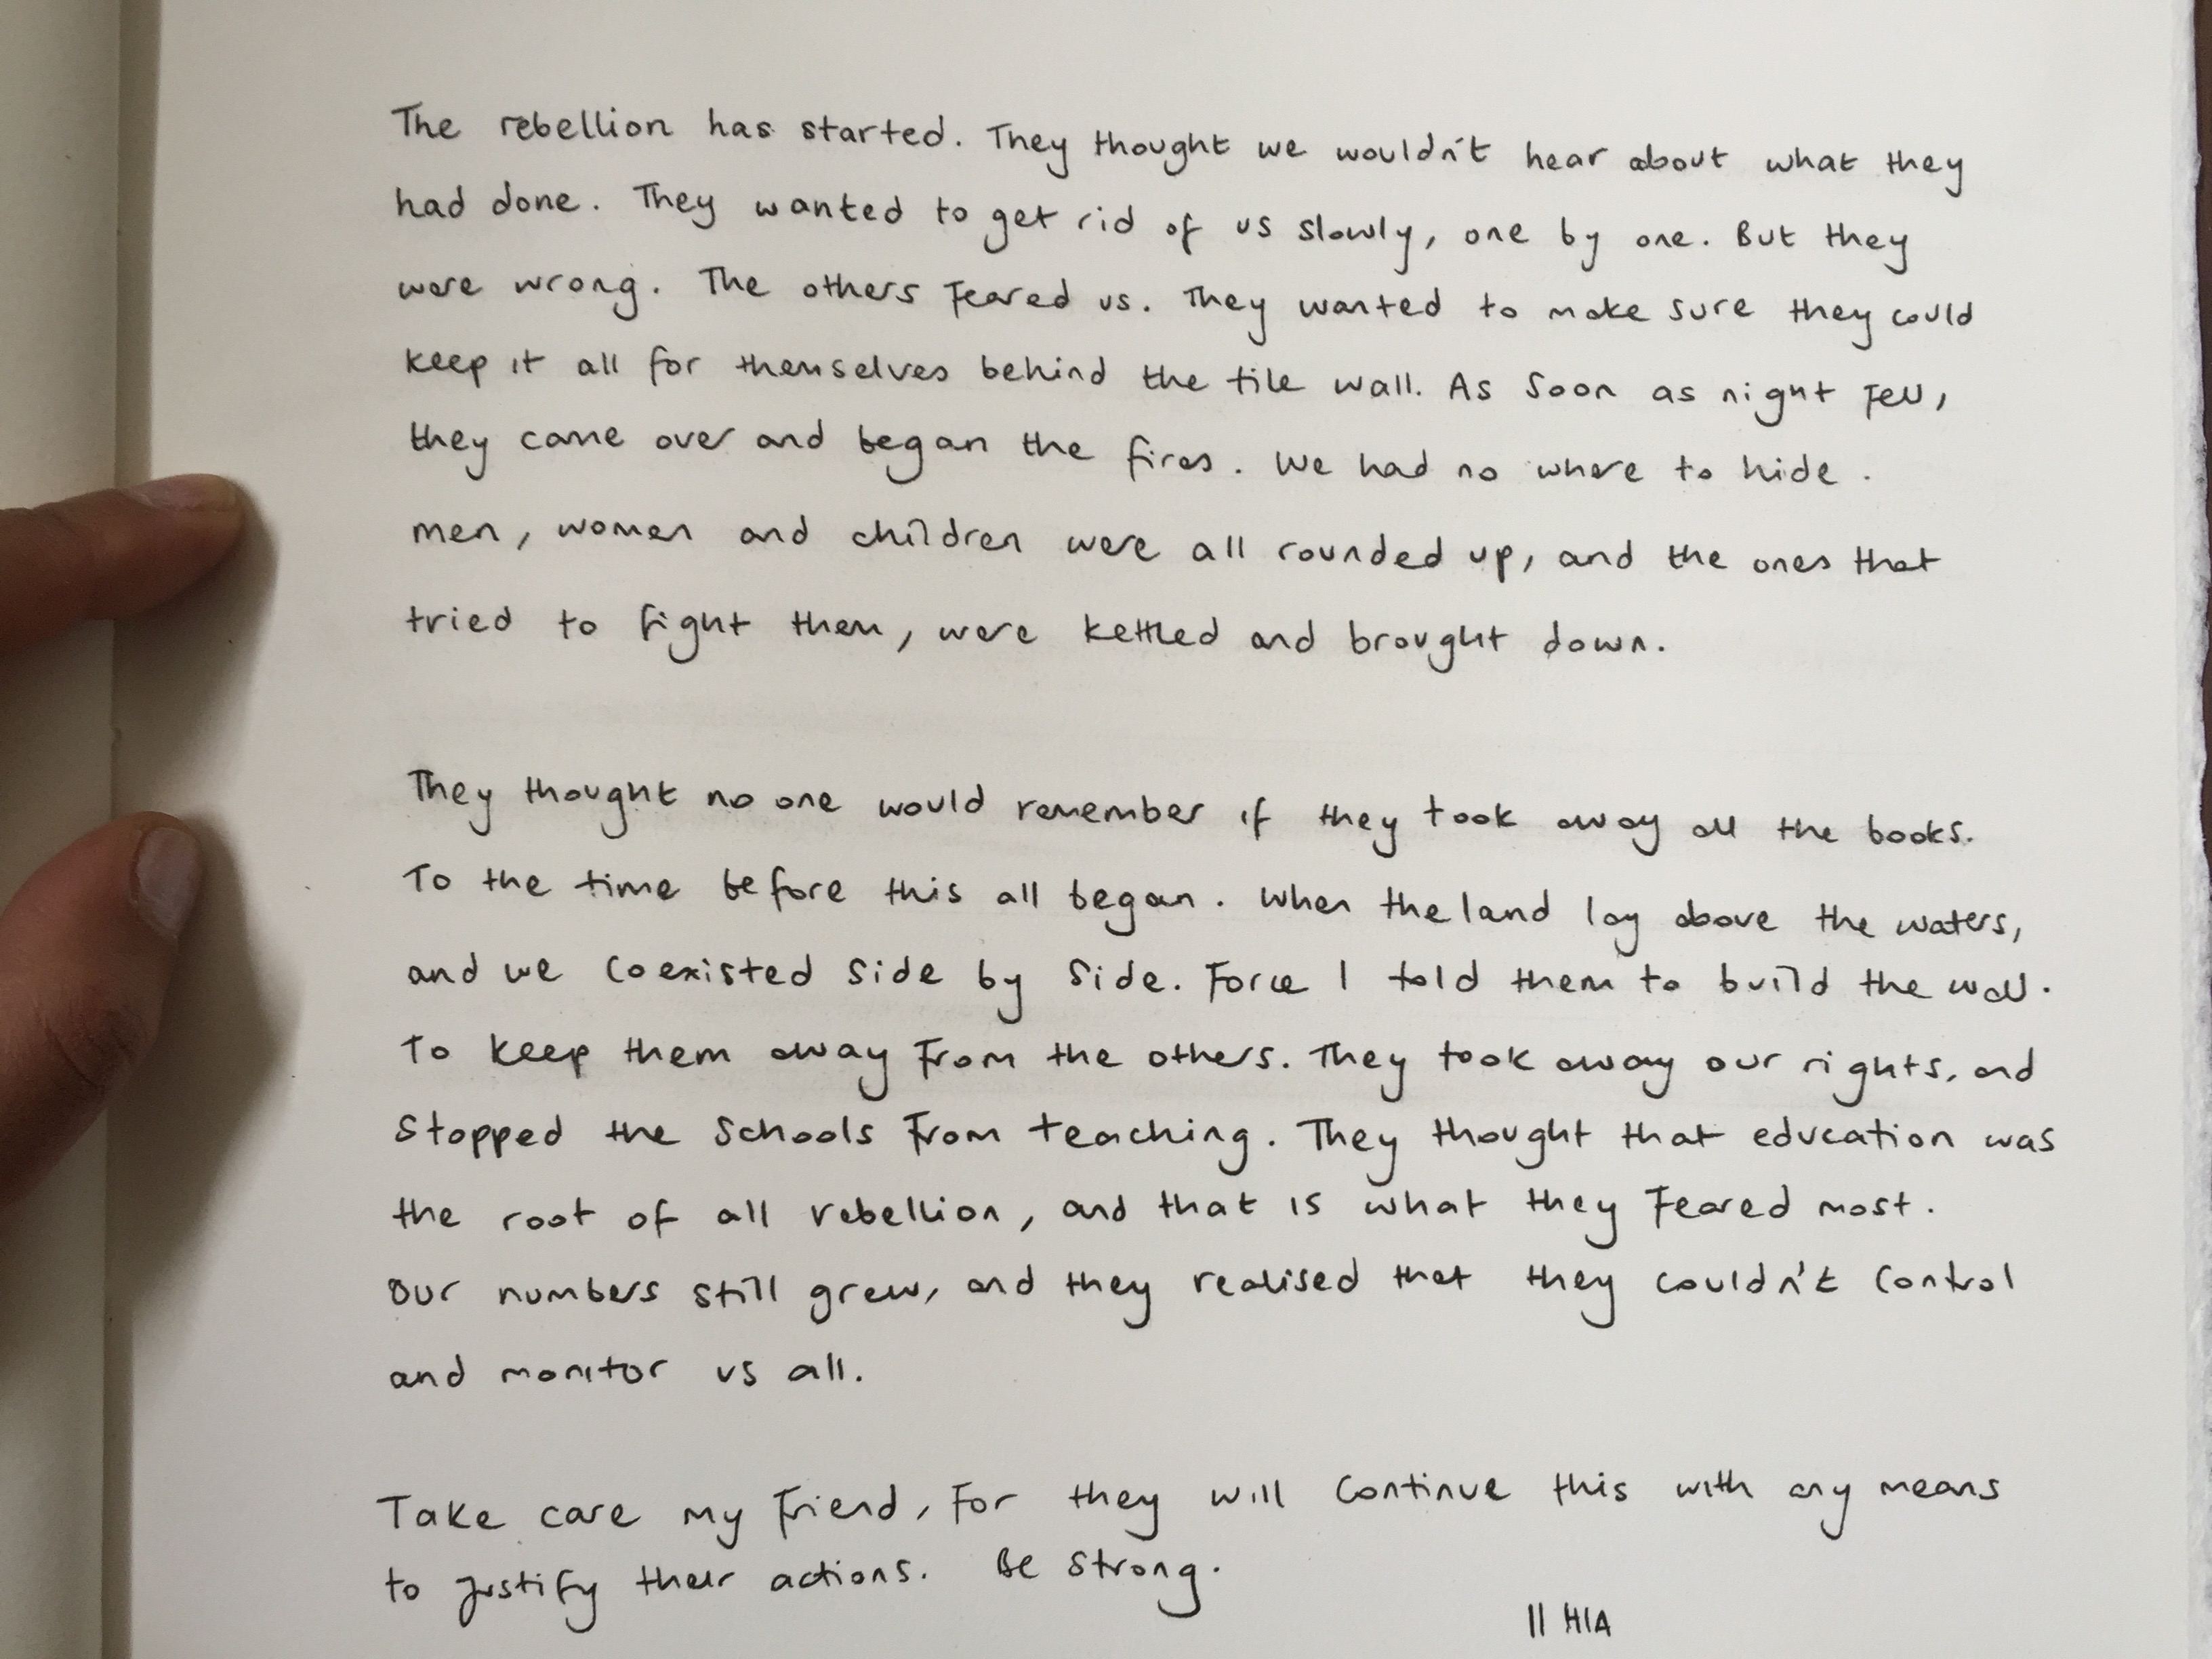 The rebellion has started. They thought we wouldn't hear about what they
had done. They wanted to get rid of us slowly, one by one. But they
were wrong. The others Feared us. They wanted to make sure they could
keep it all for themselves behind the tile wall. As soon as night Fell,
they came over and began the fires. We had no where to hide.
men, women and children were all rounded up, and the ones that
tried to fight them, were kettled and brought down.
They thought no one would remember if they took away all the books.
To the time before this all began. When the land lay above the waters,
and we coexisted side by side. Force I told them to build the wall.
To keep them away From the others. They took away our rights, and
stopped the schools From teaching. They thought that education was
the root of all rebellion, and that is what they Feared most.
Our numbers still grew, and they realised that they couldn't control
and monitor us all.
Take care my Friend, For they will continue this with any means
to justify their actions. Be strong.
|| HIA